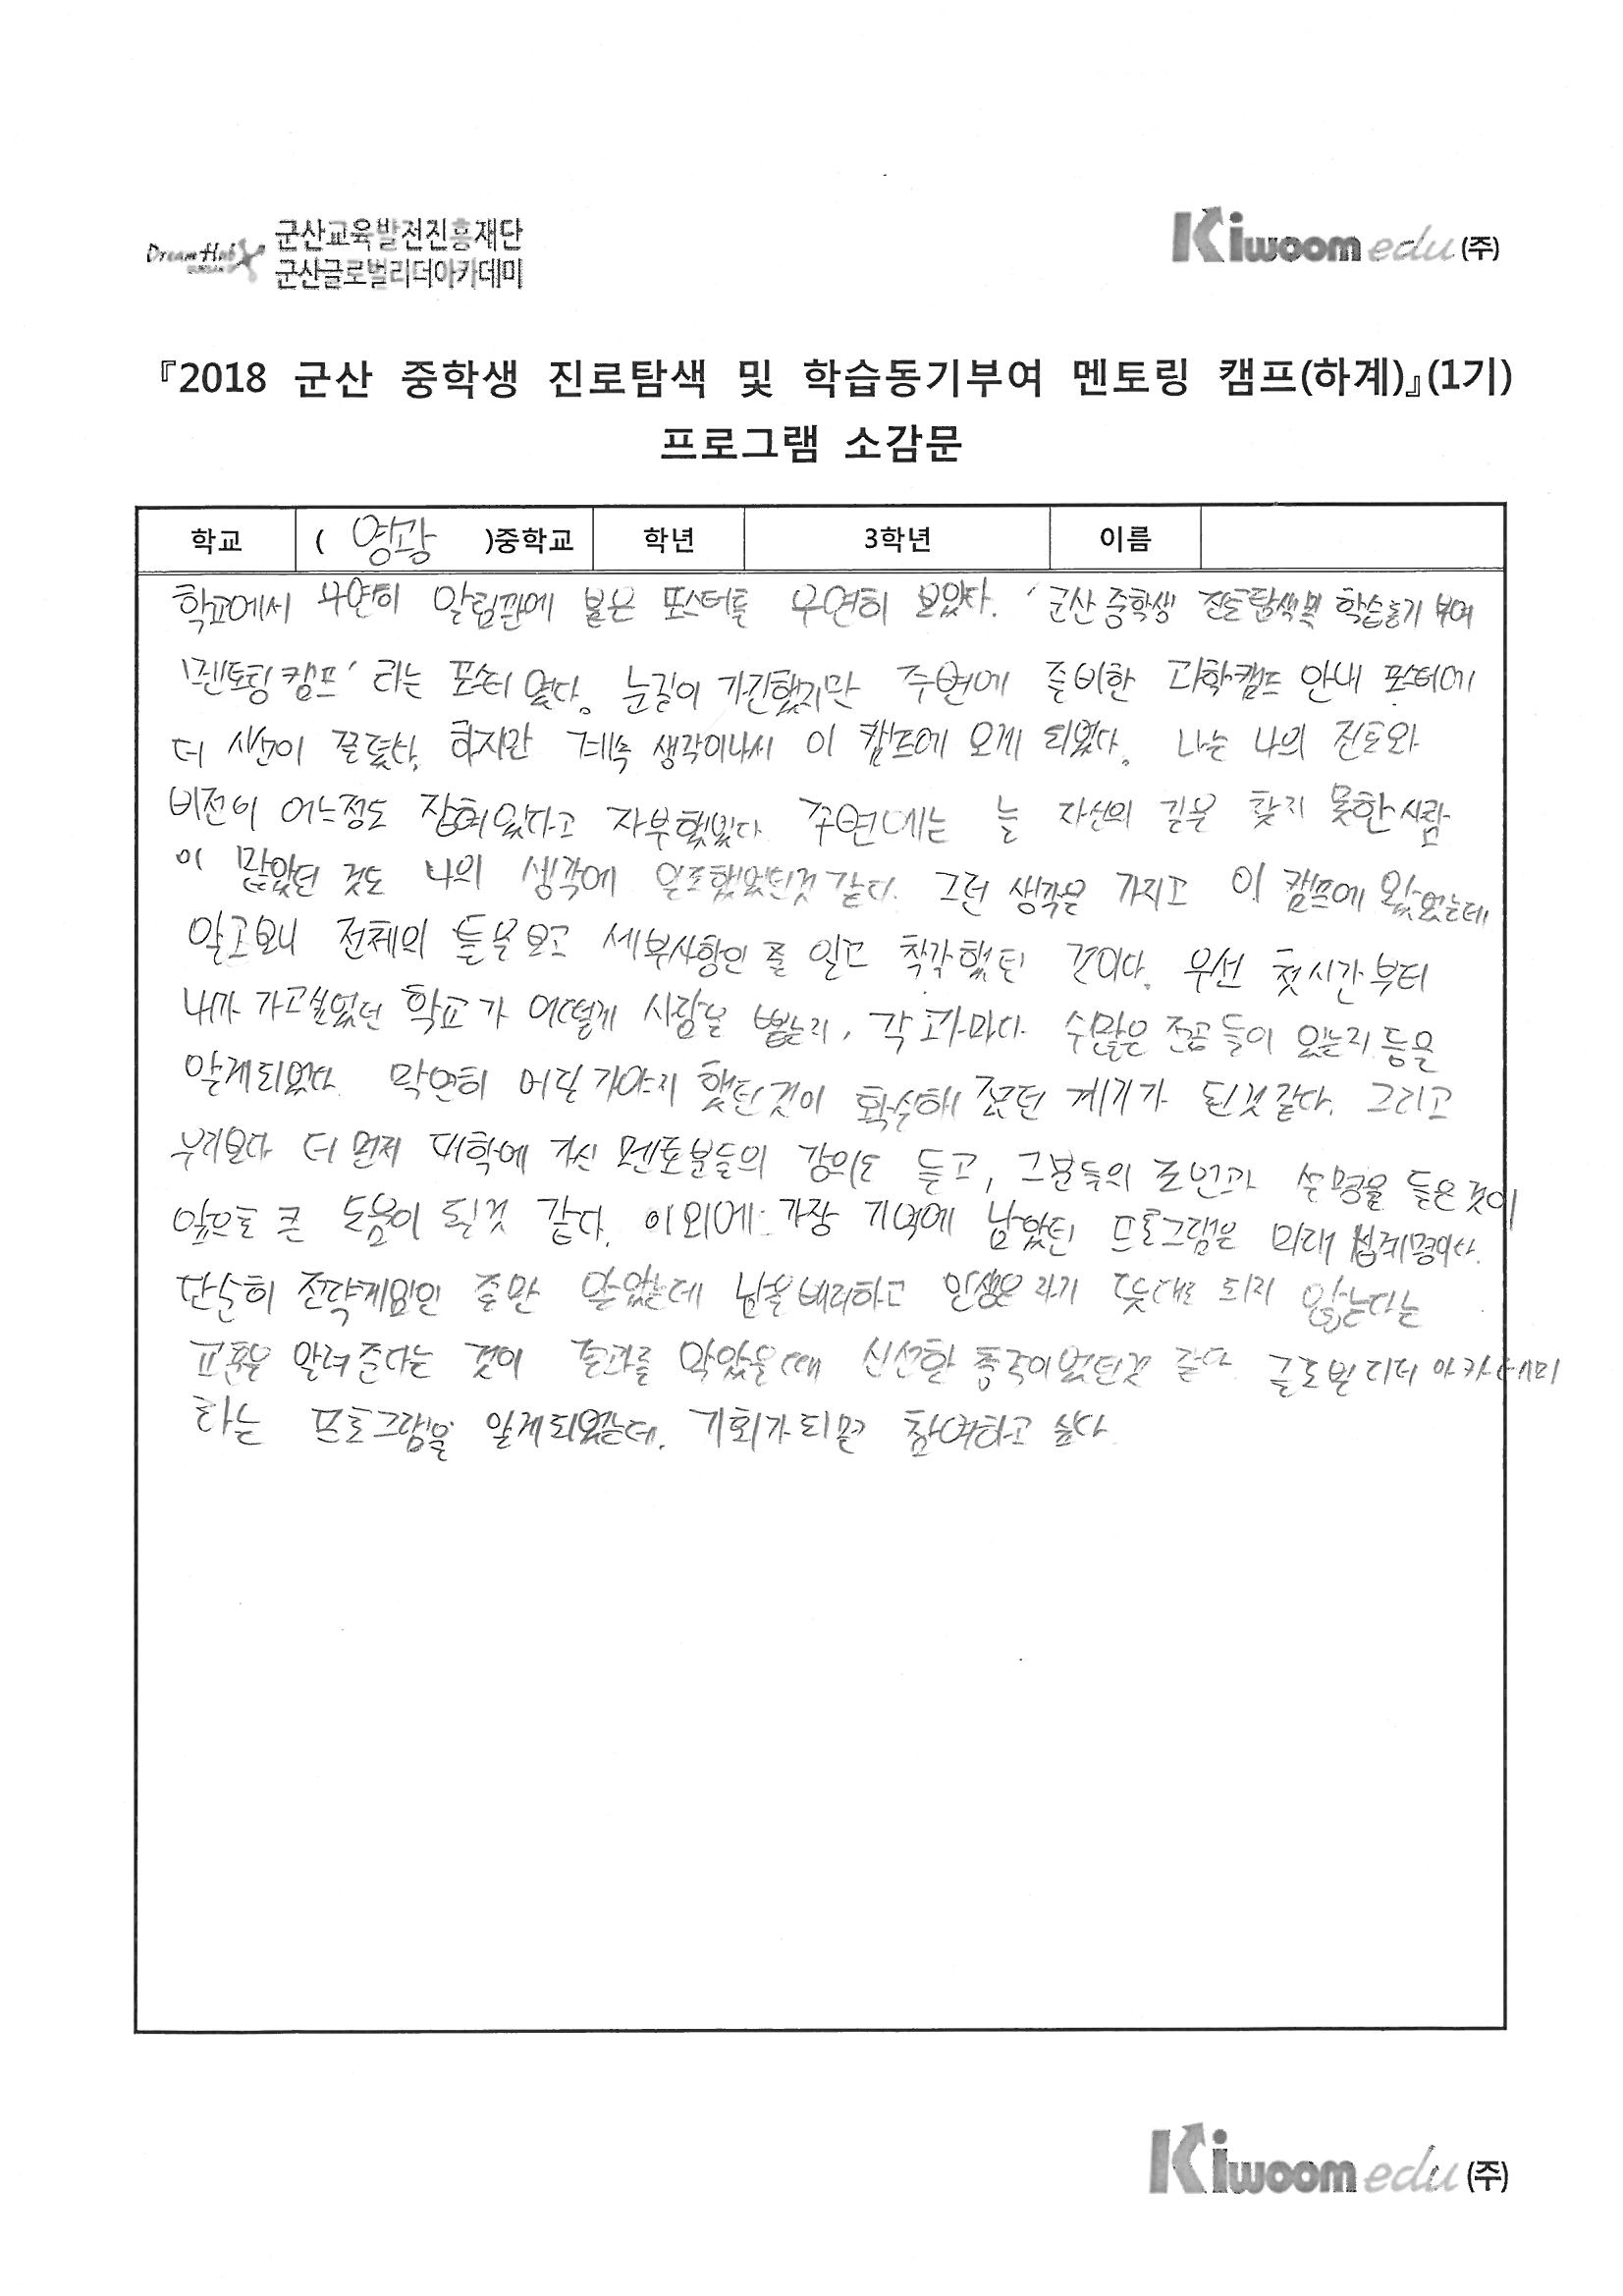 Dream Hub
군산교육발전진흥재단
GUNSAN
군산글로벌리더아카데미
Kiwoom edu (주)
『2018 군산 중학생 진로탐색 및 학습동기부여 멘토링 캠프(하계)』(1기)
프로그램 소감문
학교 ( 영광 )중학교 학년 3학년 이름
학교에서 우연히 알림판에 붙은 포스터를 우연히 보았다. '군산 중학생 진로탐색및 학습동기 부여
멘토링 캠프' 라는 포스터 였다. 눈길이 가긴했지만 주변에 준비한 과학캠프 안내 포스터에
더 시선이 끌렸다. 하지만 계속 생각이나서 이 캠프에 오게 되었다. 나는 나의 진로와
비전이 어느정도 잡혀있다고 자부했었다. 주변에는 늘 자신의 길을 찾지 못한 사람
이 많았던 것도 나의 생각에 일조했었던것 같다. 그런 생각을 가지고 이 캠프에 왔었는데
알고보니 전체의 틀을 보고 세부사항인 줄 알고 착각했던 것이다. 우선 첫시간부터
내가 가고싶었던 학교가 어떻게 사람을 뽑는지, 각 과마다 수많은 전공들이 있는지 등을
알게되었다. 막연히 어딜 가야지 했던것이 확실해 졌던 계기가 된것같다. 그리고
우리보다 더 먼저 대학에 가신 멘토분들의 강의도 듣고, 그분들의 조언과 설명을 들은것이
앞으로 큰 도움이 될것 같다. 이외에 가장 기억에 남았던 프로그램은 미래 설계명이다.
단순히 전략게임인 줄만 알았는데 남을 배려하고 인생은 자기 뜻대로 되지 않는다는
교훈을 알려준다는 것이 결과를 알았을때 신선한 충격이었던것 같다. 글로벌 리더 아카데미
라는 프로그램을 알게되었는데, 기회가 되면 참여하고 싶다.
Kiwoom edu (주)